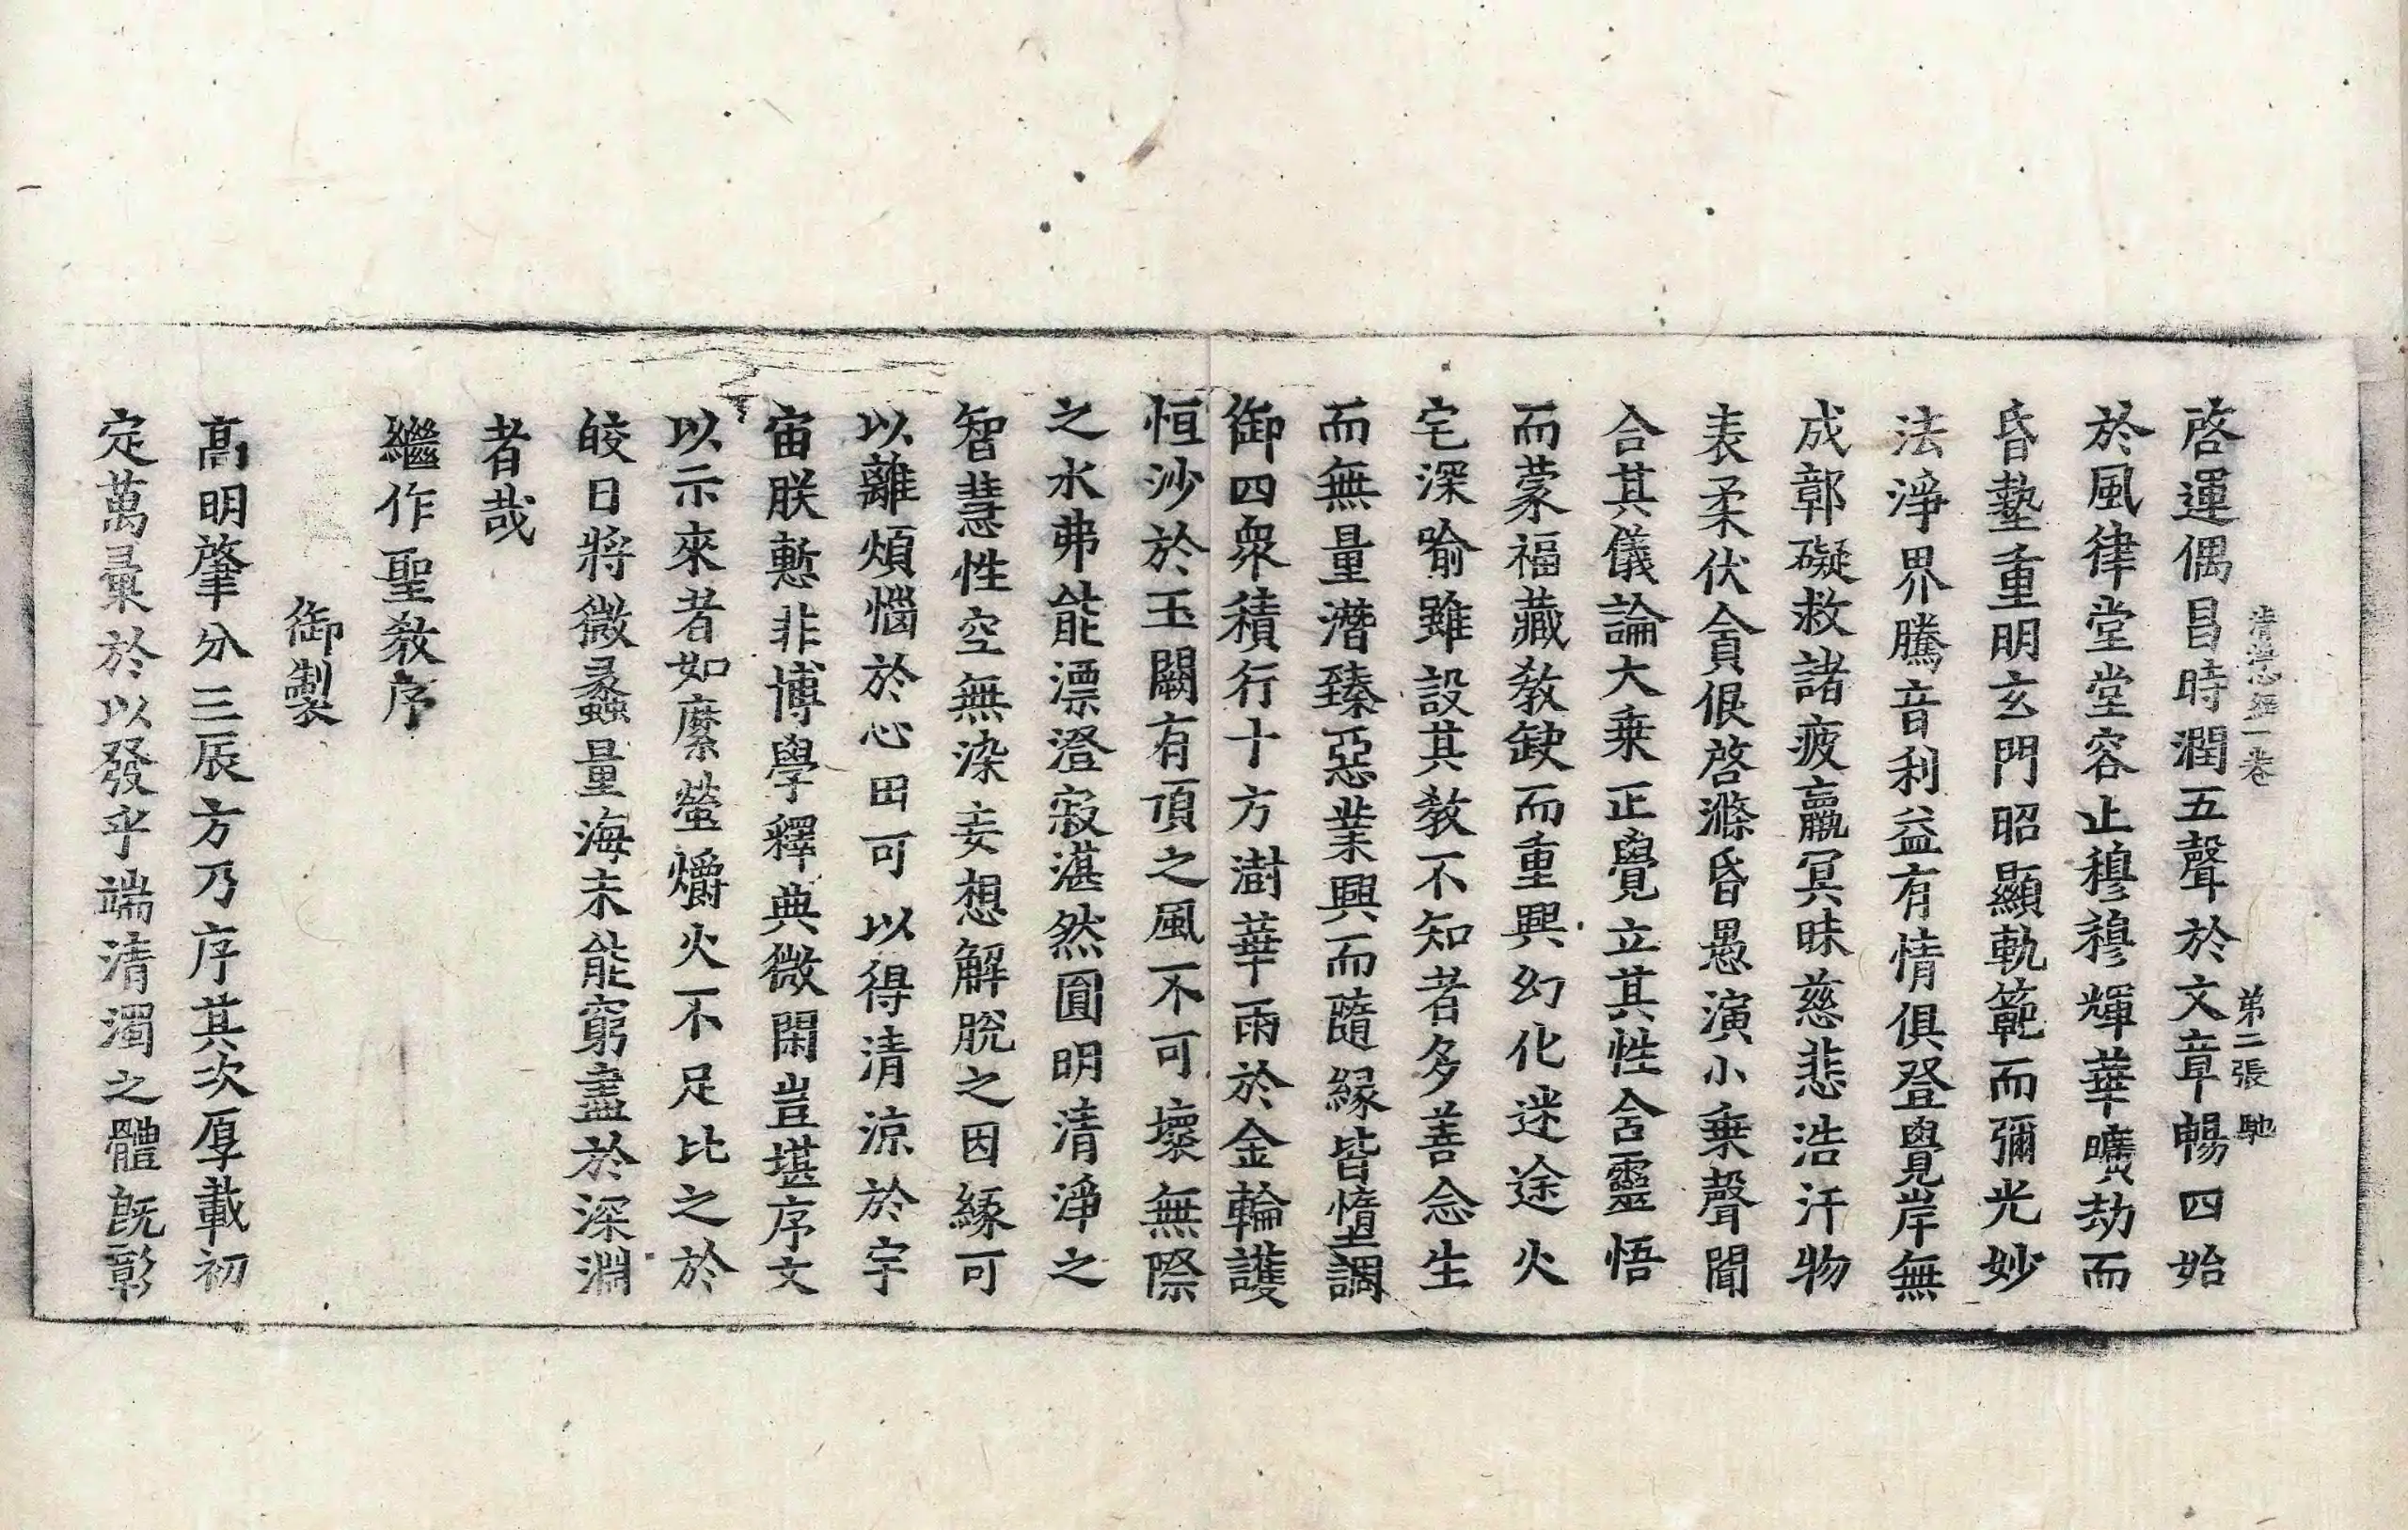 啓運偶昌時潤五聲於文章暢四始
於風律堂堂容止穆穆輝華曠劫而
昏蟄重明玄門昭顯軌範而彌光妙
法淨界騰音利益有情俱登覺岸無
成鄣礙救諸疲羸冥昧慈悲浩汗物
表柔伏貪佷啓滌昏愚演小乗聲聞
合其儀論大乗正覺立其性含靈悟
而蒙福藏敎缺而重興幻化迷途火
宅深喻雖設其敎不知者多善念生
而無量潛臻惡業興而隨緣皆墮調
御四衆積行十方澍華雨於金輪護
恒沙於玉闕有頂之風不可壞無際
之水弗能漂澄寂湛然圓明清淨之
智慧性空無染妄想解脫之因緣可
以離煩惱於心田可以得清涼於宇
宙朕慙非博學釋典微閑豈堪序文
以示來者如縻螢爝火不足比之於
皎日將微蠡量海未能窮盡於深淵
者哉
繼作聖敎序
御製
高明肇分三辰方乃序其次厚載初
定萬彙於以發乎端清濁之體旣彰
一卷 第二張 馳